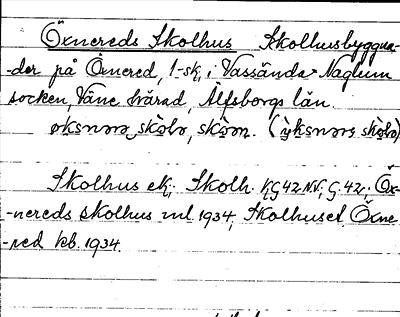 Öxnereds Skolhus Skolhusbyggna-
-der på Öxnered, 1-sk, i Vassända-Naglum
socken, Väne härad, Älfsborgs län.
øksnərə skọlə, skọən. (ỳksnərs skọlə)
Skolhus ek; Skolh. KG42NV, G.42. Öx-
-nereds skolhus ml. 1934, Skolhuset Öxne-
-red kb. 1934.